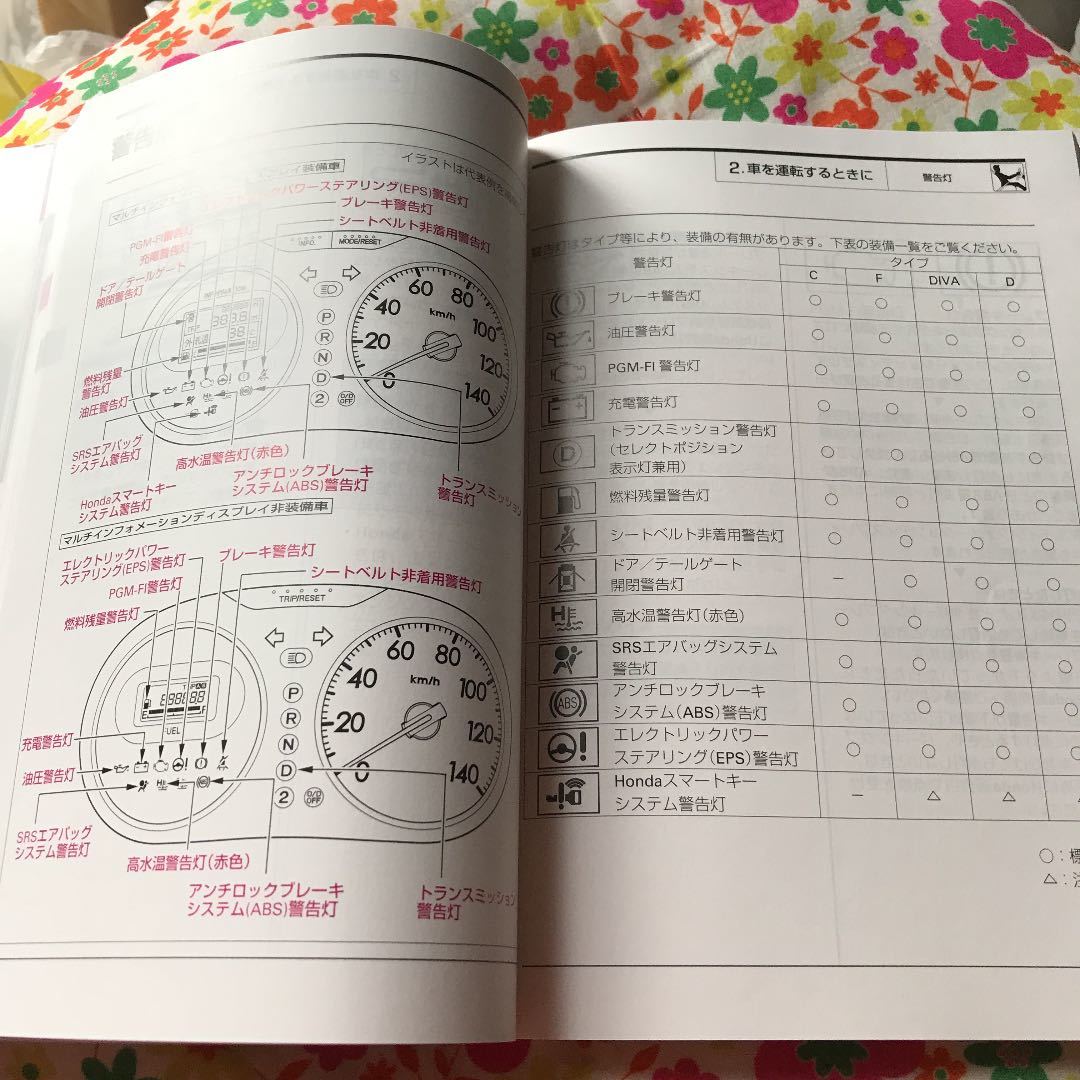 警告
イラストは代表例を
レイ装備車
パワーステアリング(EPS)警告灯
ブレーキ警告灯
シートベルト非着用警告灯
PGM-FI警告灯
充電警告灯
ドア/テールゲート
開閉警告灯
INFO.
MODE/RESET
燃料残量
警告灯
油圧警告灯
SRSエアバッグ
システム警告灯
Hondaスマートキー
システム警告灯
高水温警告灯(赤色)
アンチロックブレーキ
システム(ABS)警告灯
トランスミッション
警告灯
P
R
N
D
2
D/D
OFF
0
20
40
60
80
100
120
140
km/h
マルチインフォメーションディスプレイ非装備車
エレクトリックパワー
ステアリング(EPS)警告灯
ブレーキ警告灯
PGM-FI警告灯
シートベルト非着用警告灯
燃料残量警告灯
TRIP/RESET
充電警告灯
油圧警告灯
SRSエアバッグ
システム警告灯
高水温警告灯(赤色)
アンチロックブレーキ
システム(ABS)警告灯
トランスミッション
警告灯
P
R
N
D
2
D/D
OFF
0
20
40
60
80
100
120
140
km/h
2.車を運転するときに
警告灯
警告灯はタイプ等により、装備の有無があります。下表の装備一覧をご覧ください。
警告灯 タイプ
C F DIVA D
ブレーキ警告灯 ○ ○ ○ ○
油圧警告灯 ○ ○ ○ ○
PGM-FI 警告灯 ○ ○ ○ ○
充電警告灯 ○ ○ ○ ○
トランスミッション警告灯
(セレクトポジション
表示灯兼用) ○ ○ ○ ○
燃料残量警告灯 ○ ○ ○ ○
シートベルト非着用警告灯 ○ ○ ○ ○
ドア/テールゲート
開閉警告灯 － ○ ○ ○
高水温警告灯(赤色) ○ ○ ○ ○
SRSエアバッグシステム
警告灯 ○ ○ ○ ○
アンチロックブレーキ
システム(ABS)警告灯 ○ ○ ○ ○
エレクトリックパワー
ステアリング(EPS)警告灯 ○ ○ ○ ○
Hondaスマートキー
システム警告灯 － △ △ △
○:標
△:注